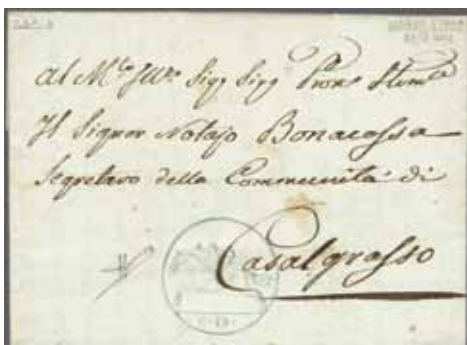 Al M.to Ill.re Sig.r Sig.r Pron.e Stim.o
Il Signor Notajo Bonacossa
Segretaro della Communità di
Casalgrasso